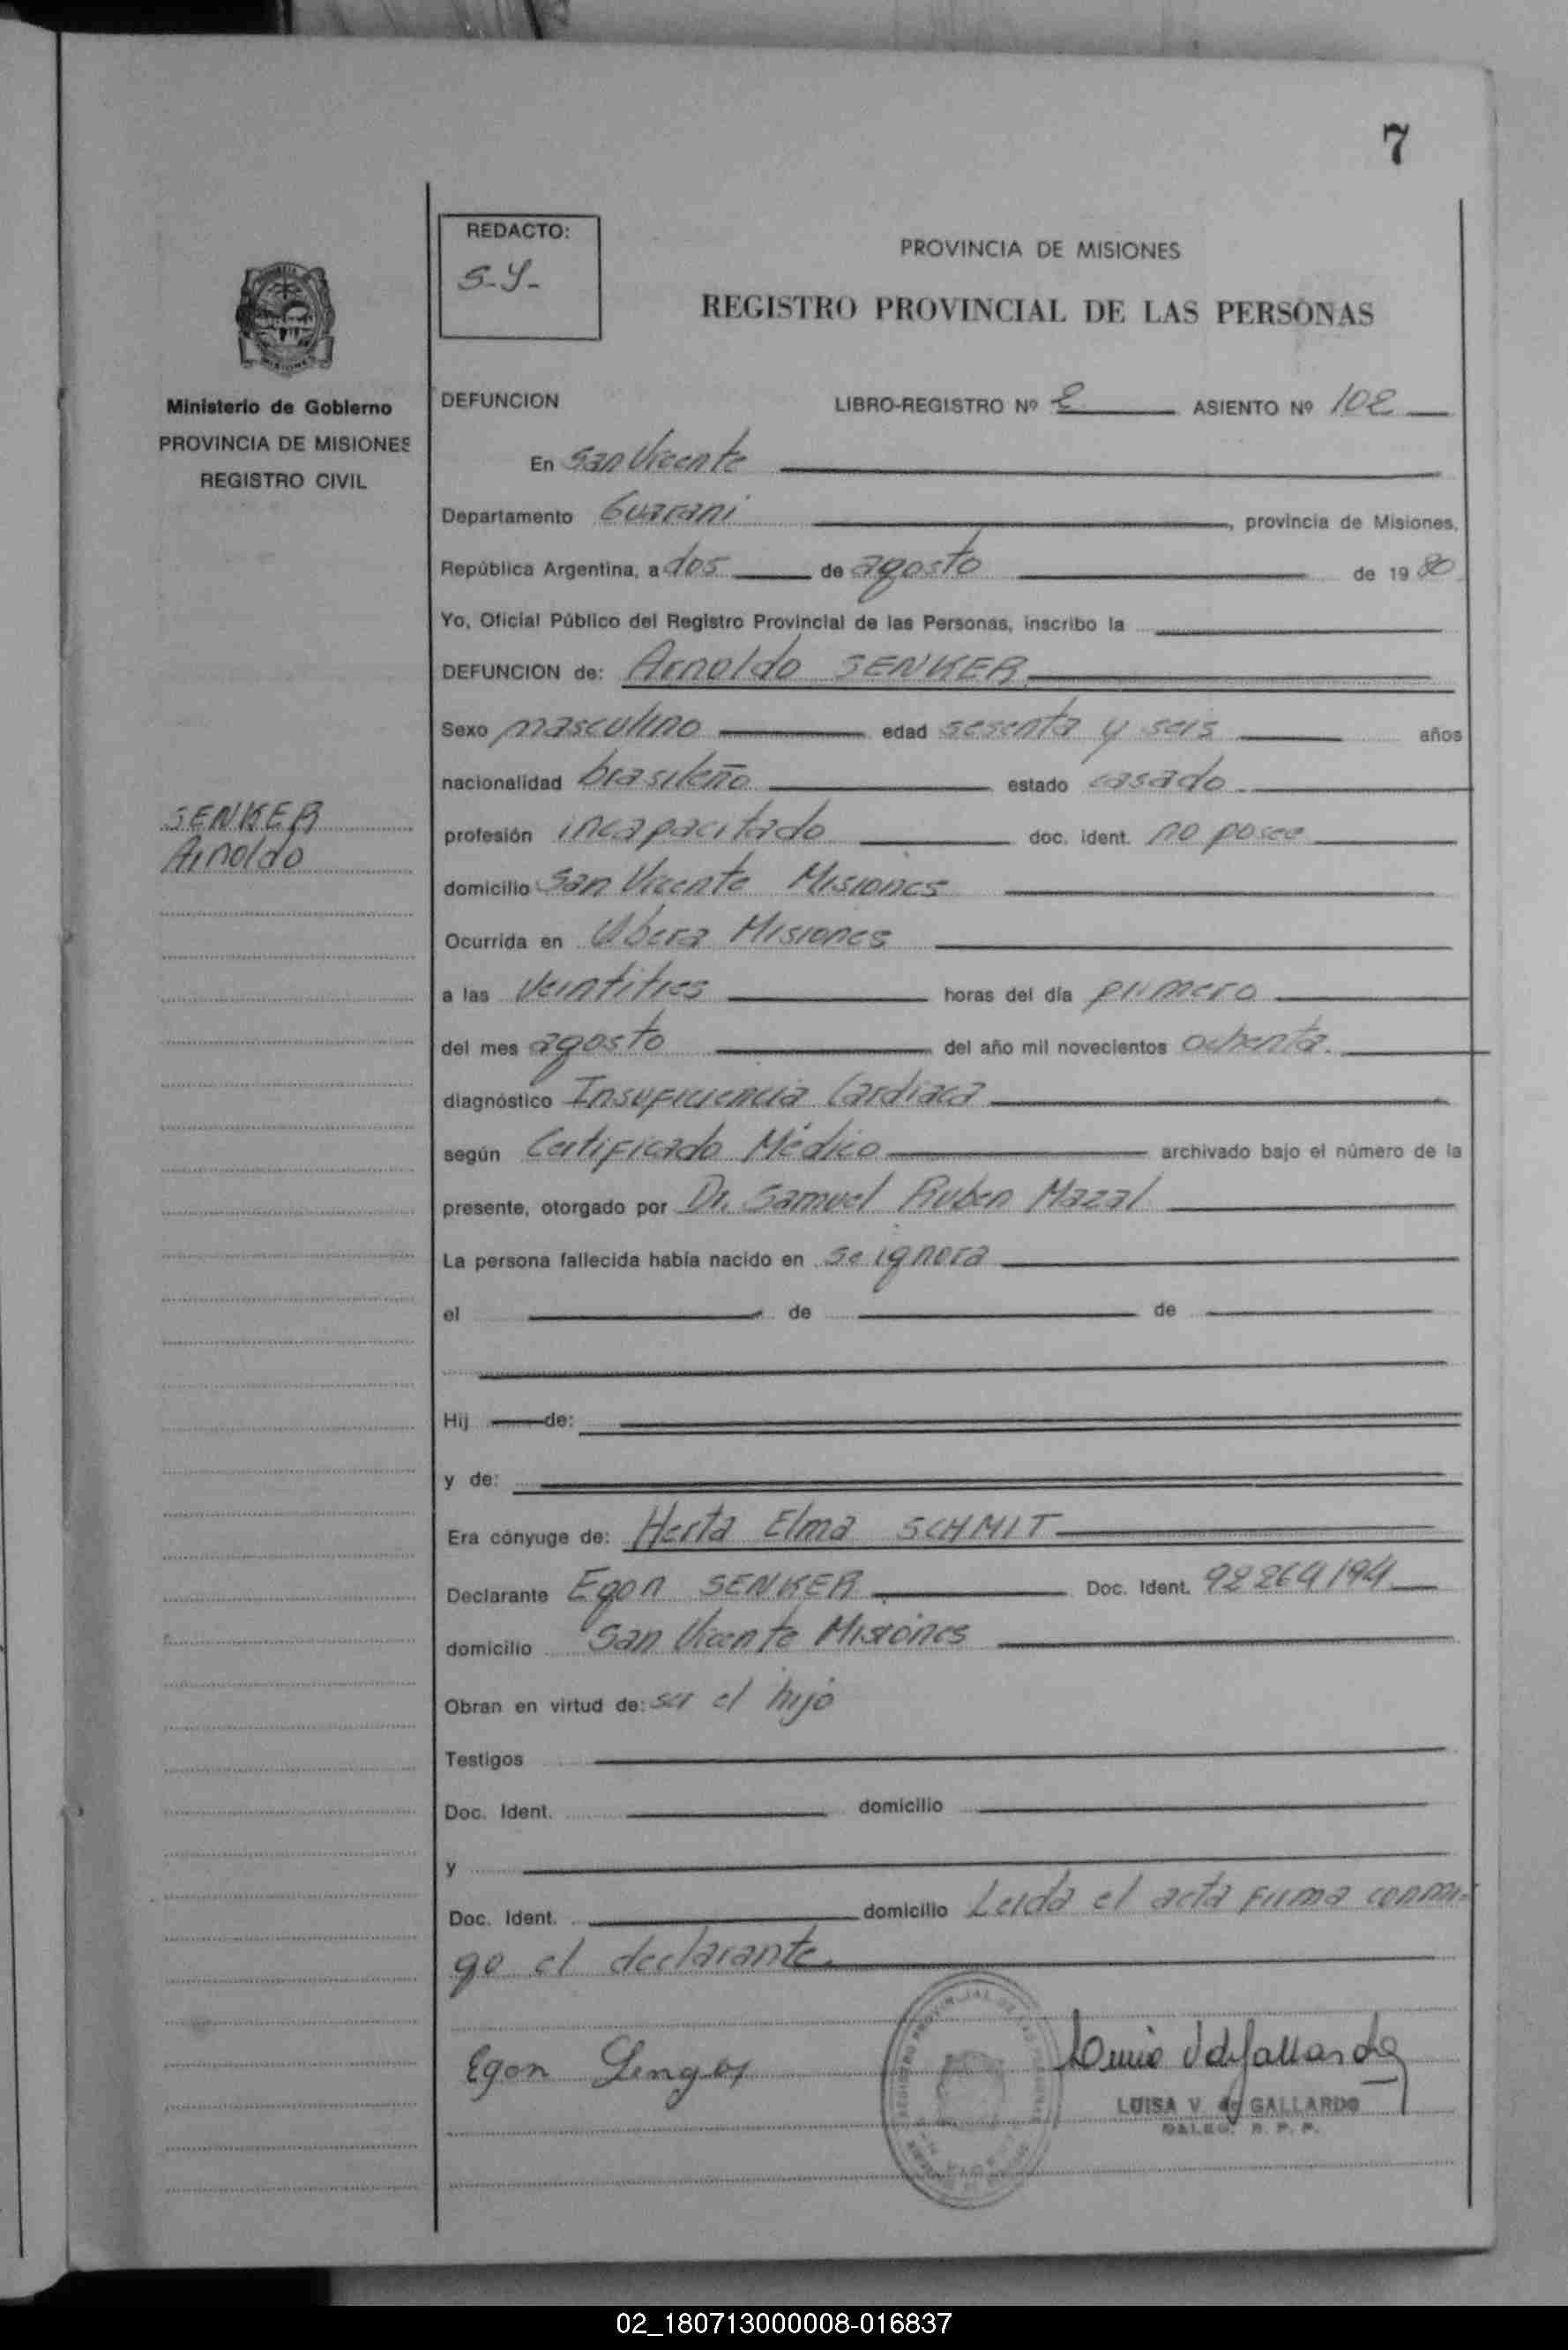 7
REDACTO:
S-Y-
PROVINCIA DE MISIONES
REGISTRO PROVINCIAL DE LAS PERSONAS
Ministerio de Gobierno
PROVINCIA DE MISIONES
REGISTRO CIVIL
SENKER
Arnoldo
DEFUNCION LIBRO-REGISTRO Nº 2 ASIENTO Nº 102
En San Vicente
Departamento Guarani, provincia de Misiones,
República Argentina, a dos de agosto de 1980
Yo, Oficial Público del Registro Provincial de las Personas, inscribo la
DEFUNCION de: Arnoldo SENKER
Sexo masculino edad sesenta y seis años
nacionalidad brasileño estado casado
profesión incapacitado doc. ident. no posee
domicilio San Vicente Misiones
Ocurrida en Obera Misiones
a las veintitres horas del día primero
del mes agosto del año mil novecientos ochenta.
diagnóstico Insuficiencia Cardiaca
según Certificado Médico archivado bajo el número de la
presente, otorgado por Dr. Samuel Ruben Mazal
La persona fallecida había nacido en se ignora
el de de
Hij de:
y de:
Era cónyuge de: Herta Elma SCHMIT
Declarante Egon SENKER Doc. Ident. 92264194
domicilio San Vicente Misiones
Obran en virtud de: ser el hijo
Testigos
Doc. Ident. domicilio
y
Doc. Ident. domicilio Leida el acta firma conmi-
go el declarante.
Egon
LUISA V. de GALLARDO
DALEG. R. P. P.
02_180713000008-016837